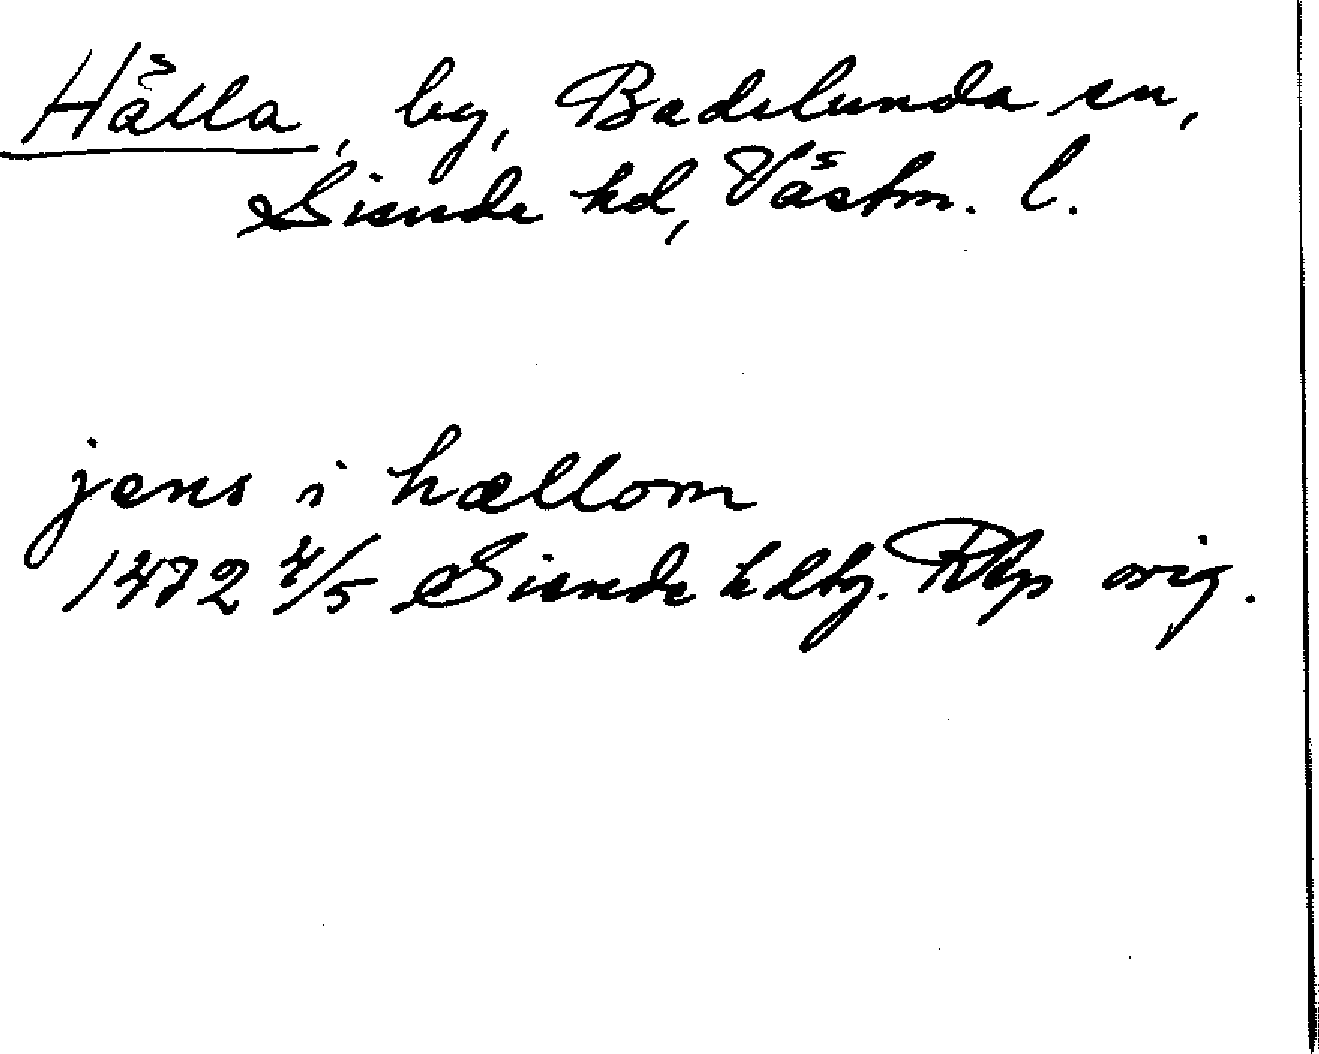 Hälla, by, Badelunda sn,
Siende hd, Västm. l.
jens i hællom
1472 4/5 Siende hdtg. RAp orig.